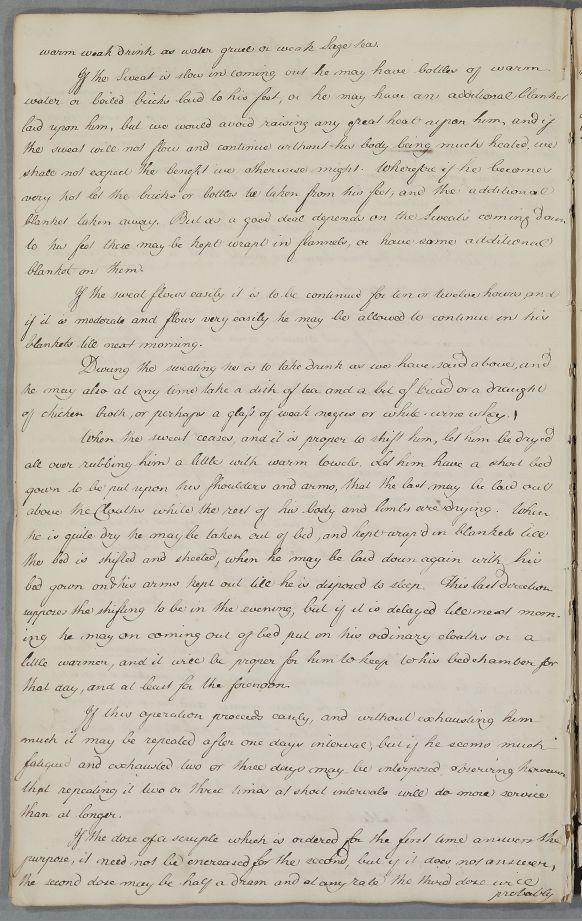 warm weak Drink as water gruel or weak Sage tea.
If the Sweat is slow in coming out he may have bottles of warm
water or boiled bricks laid to his feet, or he may have an additional blanket
laid upon him, but we would avoid raising any great heat upon him, and if
the sweat will not flow and continue without his body being much heated, we
shall not expect the benefit we otherwise might. Wherefore if he becomes
very hot let the bricks or bottles be taken from his feet, and the additional
blanket taken away. But as a good deal depends on the Sweats coming down
to his feet these may be kept wrapt in flannels, or have some additional
blanket on them.
If the sweat flows easily it is to be continued for ten or twelve hours, and
if it is moderate and flows very easily he may be allowed to continue in his
blankets till next morning.
During the sweating he is to take drink as we have said above, and
he may also at any time take a dish of tea and a bit of bread or a draught
of chicken broth, or perhaps a glass of weak negus or white-wine whey.
When the sweat ceases, and it is proper to shift him, let him be dryed
all over rubbing him a little with warm towels. Let him have a short bed
gown to be put upon his shoulders and arms, that the last may be laid out
above the Cloaths while the rest of his body and limbs are drying. When
he is quite dry he may be taken out of bed, and kept wrap'd in blankets till
the bed is shifted and sheeted, when he may be laid down again with his
bed gown on & his arms kept out till he is disposed to sleep. This last Direction
supposes the shifting to be in the evening, but if it is delayed till next morn-
ing he may on coming out of bed put on his ordinary cloaths or a
little warmer, and it will be proper for him to keep to his bedchamber for
that day, and at least for the forenoon.
If this operation proceeds easily, and without exhausting him
much it may be repeated after one days interval, but if he seems much
fatigued and exhausted two or three days may be interposed, observing however
that repeating it two or three times at short intervals will do more service
than at longer.
If the dose of a scruple which is ordered for the first time answers the
purpose, it need not be encreased for the second, but if it does not answer,
the second dose may be half a dram and at any rate the third dose will
probably